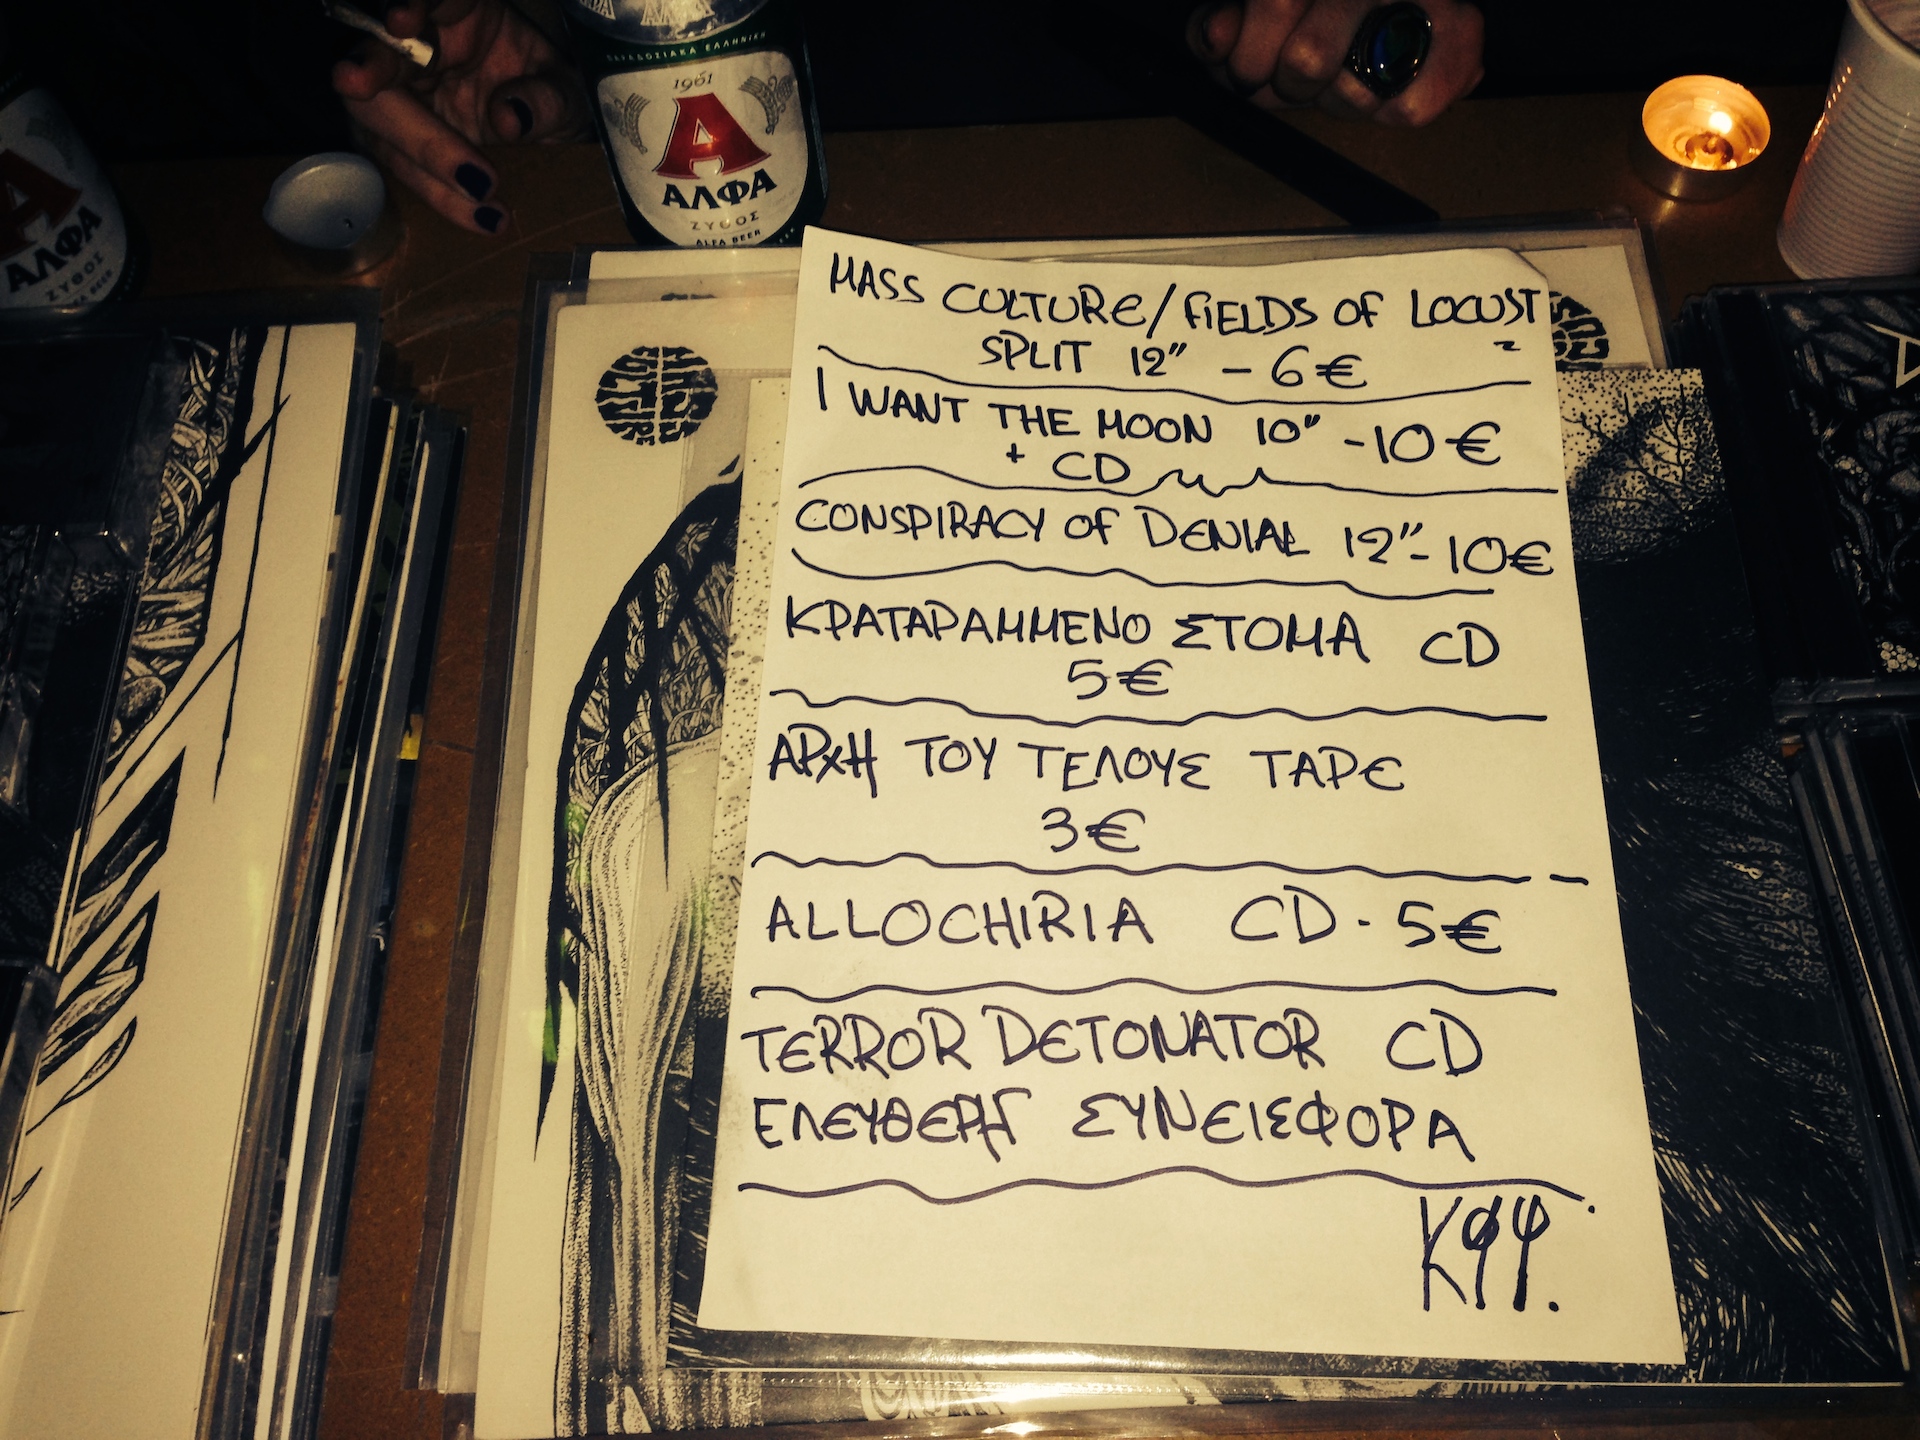 ΠΑΡΑΔΟΣΙΑΚΑ ΕΛΛΗΝΙΚΗ
1961
Α
ΑΛΦΑ
ΖΥΘΟΣ
ALFA BEER
ΑΛΦΑ
ΖΥΘΟΣ
MASS CULTURE/FIELDS OF LOCUST
SPLIT 12" - 6€
I WANT THE MOON 10" -10€
+ CD
CONSPIRACY OF DENIAL 12"-10€
ΚΡΑΤΑΡΑΜΜΕΝΟ ΣΤΟΜΑ CD
5€
ΑΡΧΗ ΤΟΥ ΤΕΛΟΥΣ TAPE
3€
ALLOCHIRIA CD - 5€
TERROR DETONATOR CD
ΕΛΕΥΘΕΡΗ ΣΥΝΕΙΣΦΟΡΑ